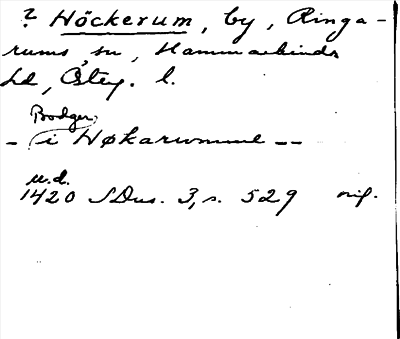 ? Höckerum, by, Ringa-
rums sn, Hammarkinds
hd, Östg. l.
Bodger,
- i Høkarumme --
u.d.
1420 SDns. 3, s. 529 orig.